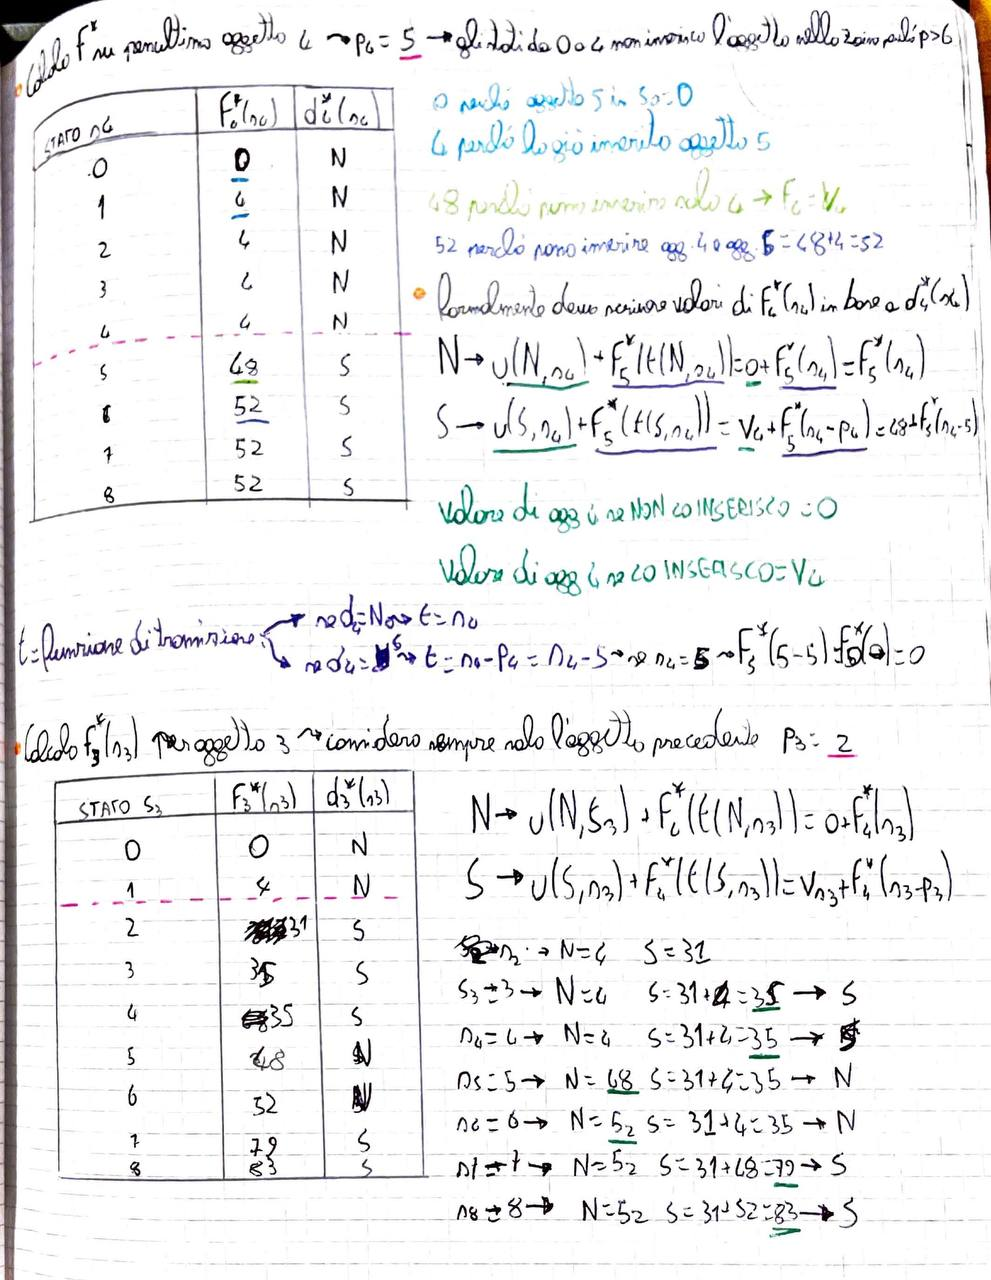 Calcolo F* su penultimo oggetto 4 → p4 = 5 → gli stati da 0 a 4 non inserisco l'oggetto nello zaino perché p>6
STATO s4 F4*(s4) d4*(s4)
0 0 N
1 4 N
2 4 N
3 4 N
4 4 N
5 48 S
6 52 S
7 52 S
8 52 S
0 perché oggetto 5 in s0=0
4 perché ho già inserito oggetto 5
48 perché posso inserire solo 4 → F4 = V4
52 perché posso inserire ogg. 4 e ogg. 5 = 48+4=52
Formalmente devo scrivere valori di F4*(s4) in base a d4*(s4)
N → u(N,s4) + F5*(t(N,s4)) = 0 + F5*(s4) = F5*(s4)
S → u(S,s4) + F5*(t(S,s4)) = V4 + F5*(s4-p4) = 48+F5*(s4-5)
Valore di ogg 4 se NON LO INSERISCO = 0
Valore di ogg 4 se LO INSERISCO = V4
t = funzione di transizione:
se d4=N → t = s4
se d4=S → t = s4-p4 = s4-5 → se s4 = 5 → F5*(5-5)=F5*(0)=0
Calcolo F3*(s3) per oggetto 3 → considero sempre solo l'oggetto precedente p3 = 2
STATO S3 F3*(s3) d3*(s3)
0 0 N
1 4 N
2 31 S
3 35 S
4 35 S
5 48 N
6 52 N
7 79 S
8 83 S
N → u(N,S3) + F4*(t(N,s3)) = 0+F4*(s3)
S → u(S,s3) + F4*(t(S,s3)) = Vs3 + F4*(s3-p3)
s2 → N=4 S=31
S3=3 → N=4 S=31+4=35 → S
s4=4 → N=4 S=31+4=35 → S
s5=5 → N=48 S=31+4=35 → N
s6=6 → N=52 S=31+4=35 → N
s7=7 → N=52 S=31+48=79 → S
s8=8 → N=52 S=31+52=83 → S